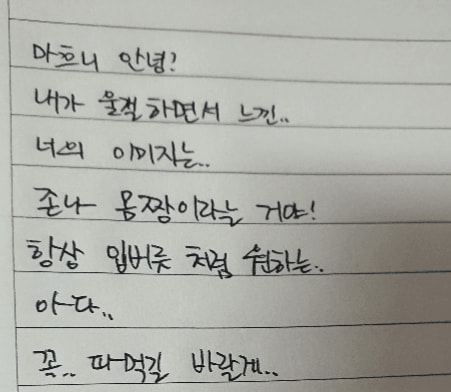 마흐니 안녕?
내가 울적하면서 느낀..
너의 이미지는..
존나 몸짱이라는 거야!
항상 입버릇 처럼 원하는..
아다..
꼭.. 따먹길 바랄게..